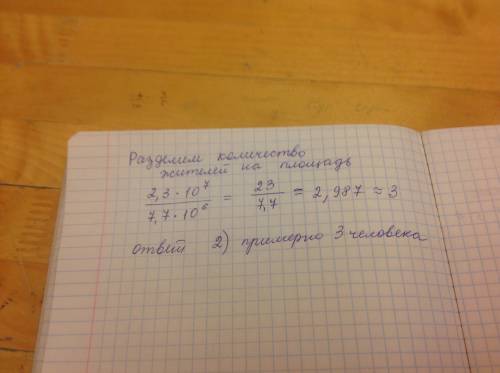 Разделим количество
жителей на площадь
2,3 · 10⁷ / 7,7 · 10⁶ = 23 / 7,7 = 2,987 ≈ 3
ответ 2) примерно 3 человека